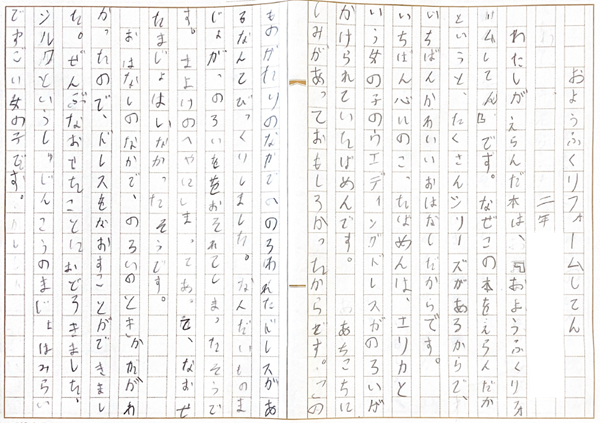 おようふくリフォームしてん
二年
わたしがえらんだ本は、「おようふくリフォ
ームしてんB」です。なぜこの本をえらんだか
というと、たくさんシリーズがあるからで、
いちばんかわいいおはなしだからです。
いちばん心にのこったばめんは、エリカと
いう女の子のウエディングドレスがのろいが
かけられていたばめんです。あちこちに
しみがあっておもしろかったからです。この
ものがたりのなかで、のろわれたドレスがあ
るなんてびっくりしました。なんだいしのま
じょが、のろいをおそれてしまったそうで
す。さよけのへやにしまってあって、なおせ
たまじょはいなかったそうです。
おはなしのなかで、のろいのときかたがわ
かったので、ドレスをなおすことができまし
た。ぜんぶなおせたことにおどろきました。
シルクというし。じんこうのまじょはみらい
ですごい女の子です。